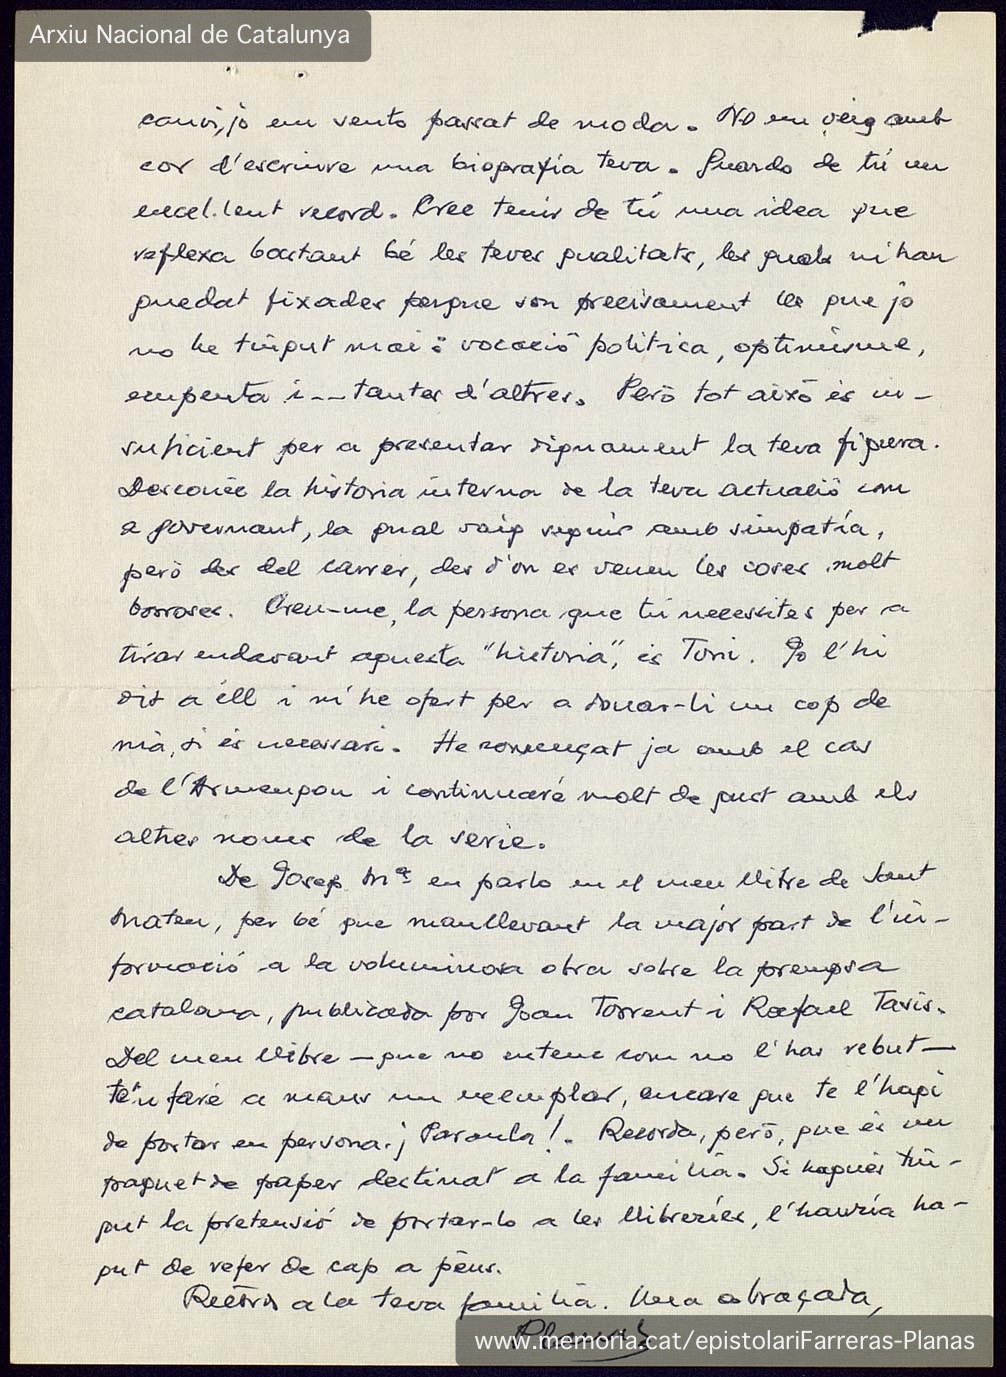 Arxiu Nacional de Catalunya
canvi, jo em sento passat de moda. No em veig amb
cor d'escriure una biografia teva. Guardo de tú un
excel.lent record. Crec tenir de tú una idea que
reflexa bastant bé les teves qualitats, les quals m'han
quedat fixades perque son precisament les que jo
no he tingut mai: vocació política, optimisme,
empenta i -- tantes d'altres. Però tot això és in-
suficient per a presentar dignament la teva figura.
Desconec la història interna de la teva actuació com
a governant, la qual vaig seguir amb simpatía,
però des del carrer, des d'on es veuen les coses molt
borroses. Creu-me, la persona que tú necessites per a
tirar endavant aquesta "historia", és Toni. Jo l'hi
dit a éll i m'he ofert per a donar-li un cop de
mà, si és necessari. He començat ja amb el cas
de l'Armengou i continuaré molt de gust amb els
altres noms de la serie.
De Josep Mª en parlo en el meu llibre de Sant
Mateu, per bé que manllevant la major part de l'in-
formació a la voluminosa obra sobre la prempsa
catalana, publicada per Joan Torrent i Rafael Tasis.
Del meu llibre - que no entenc com no l'has rebut -
te'n faré a mans un exemplar, encare que te l'hagi
de portar en persona. ¡Paraula!. Recorda, però, que és un
paquet de paper destinat a la família. Si hagués tin-
gut la pretensió de portar-lo a les llibreríes, l'hauría ha-
gut de refer de cap a peus.
Recòrds a la teva família. Una abraçada,
Planas
www.memoria.cat/epistolariFarreras-Planas